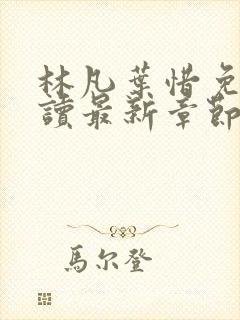 林凡葉惜免
讀最新章節
馬尔登